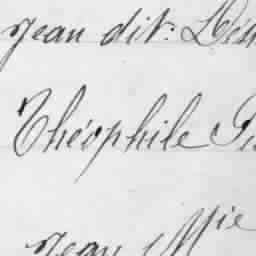 Jean dit:
Théophile
Jean Mie